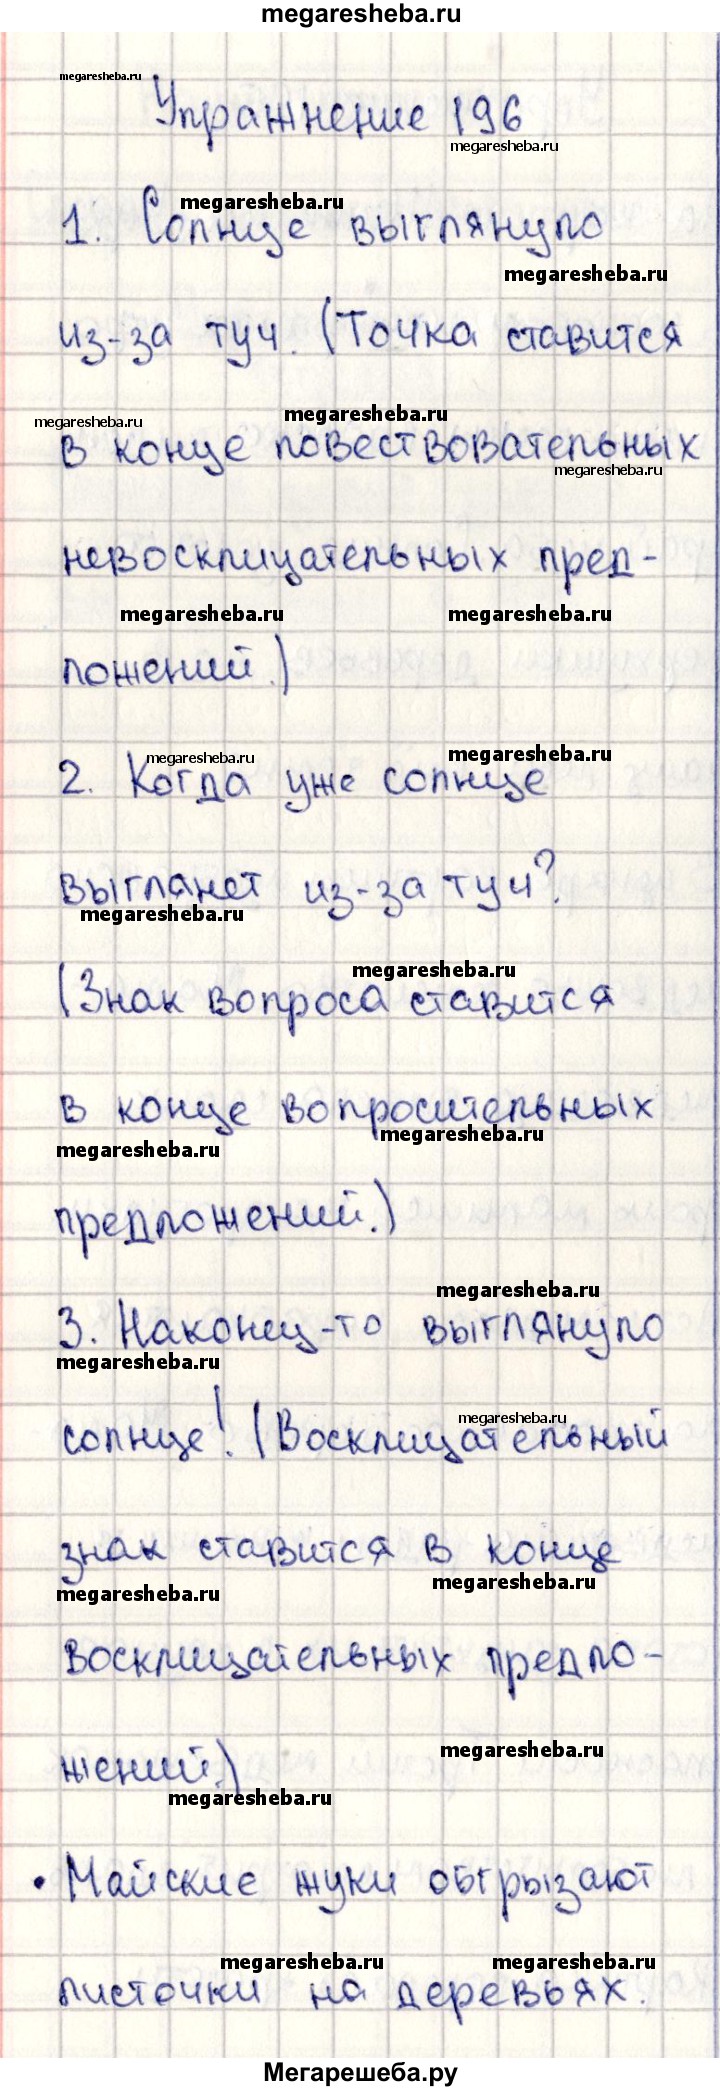 megaresheba.ru
megaresheba.ru
Упражнение 196
megaresheba.ru
megaresheba.ru
1. Солнце выглянуло
megaresheba.ru
из-за туч. (Точка ставится
megaresheba.ru megaresheba.ru
в конце повествовательных
megaresheba.ru
невосклицательных пред-
megaresheba.ru megaresheba.ru
ложений.)
megaresheba.ru megaresheba.ru
2. Когда уже солнце
выглянет из-за туч?
megaresheba.ru
megaresheba.ru
(Знак вопроса ставится
в конце вопросительных
megaresheba.ru megaresheba.ru
предложений.)
megaresheba.ru
3. Наконец-то выглянуло
megaresheba.ru
megaresheba.ru
солнце! (Восклицательный
знак ставится в конце
megaresheba.ru megaresheba.ru
восклицательных предло-
megaresheba.ru
жений.)
megaresheba.ru
• Майские жуки обгрызают
megaresheba.ru megaresheba.ru
листочки на деревьях.
Мегарешеба.ру